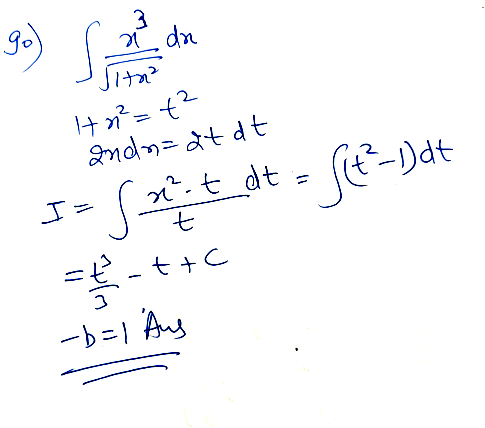 90) ∫ x³/√(1+x²) dx
1+x² = t²
2xdx = 2t dt
I = ∫ (x²·t)/t dt = ∫(t²-1)dt
= t³/3 - t + C
-b=1 Ans